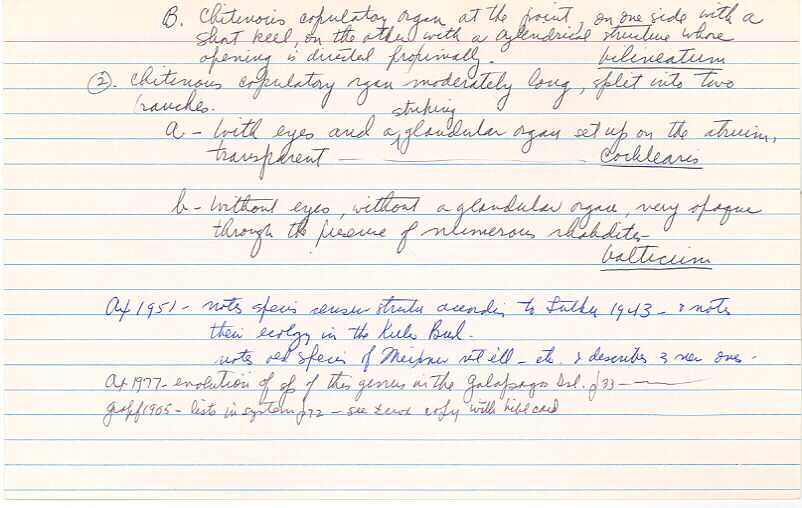 B. Chitenous copulatory organ at the point, on one side with a
short keel, on the other with a cylendrical structure whose
opening is directed proximally. bilineatum
②. Chitenous copulatory rgan moderately long, split into two
branches.
striking
a - With eyes and a glandular organ set up on the atrium,
transparent — cochlearis
b - Without eyes, without a glandular organ, very opaque
through the presence of numerous rhabdites -
balticum
Ax 1951 - notes species sensu stricto according to Luther 1943 - & notes
their ecology in the Kieler Bucht.
notes old species of Meixner nt ill - etc. & describes 3 new ones -
Ax 1977 - evolution of sp of this genus in the Galapagos Isl. p33 —
Graff 1905 - lists in system p72 - see xerox copy with bibl card